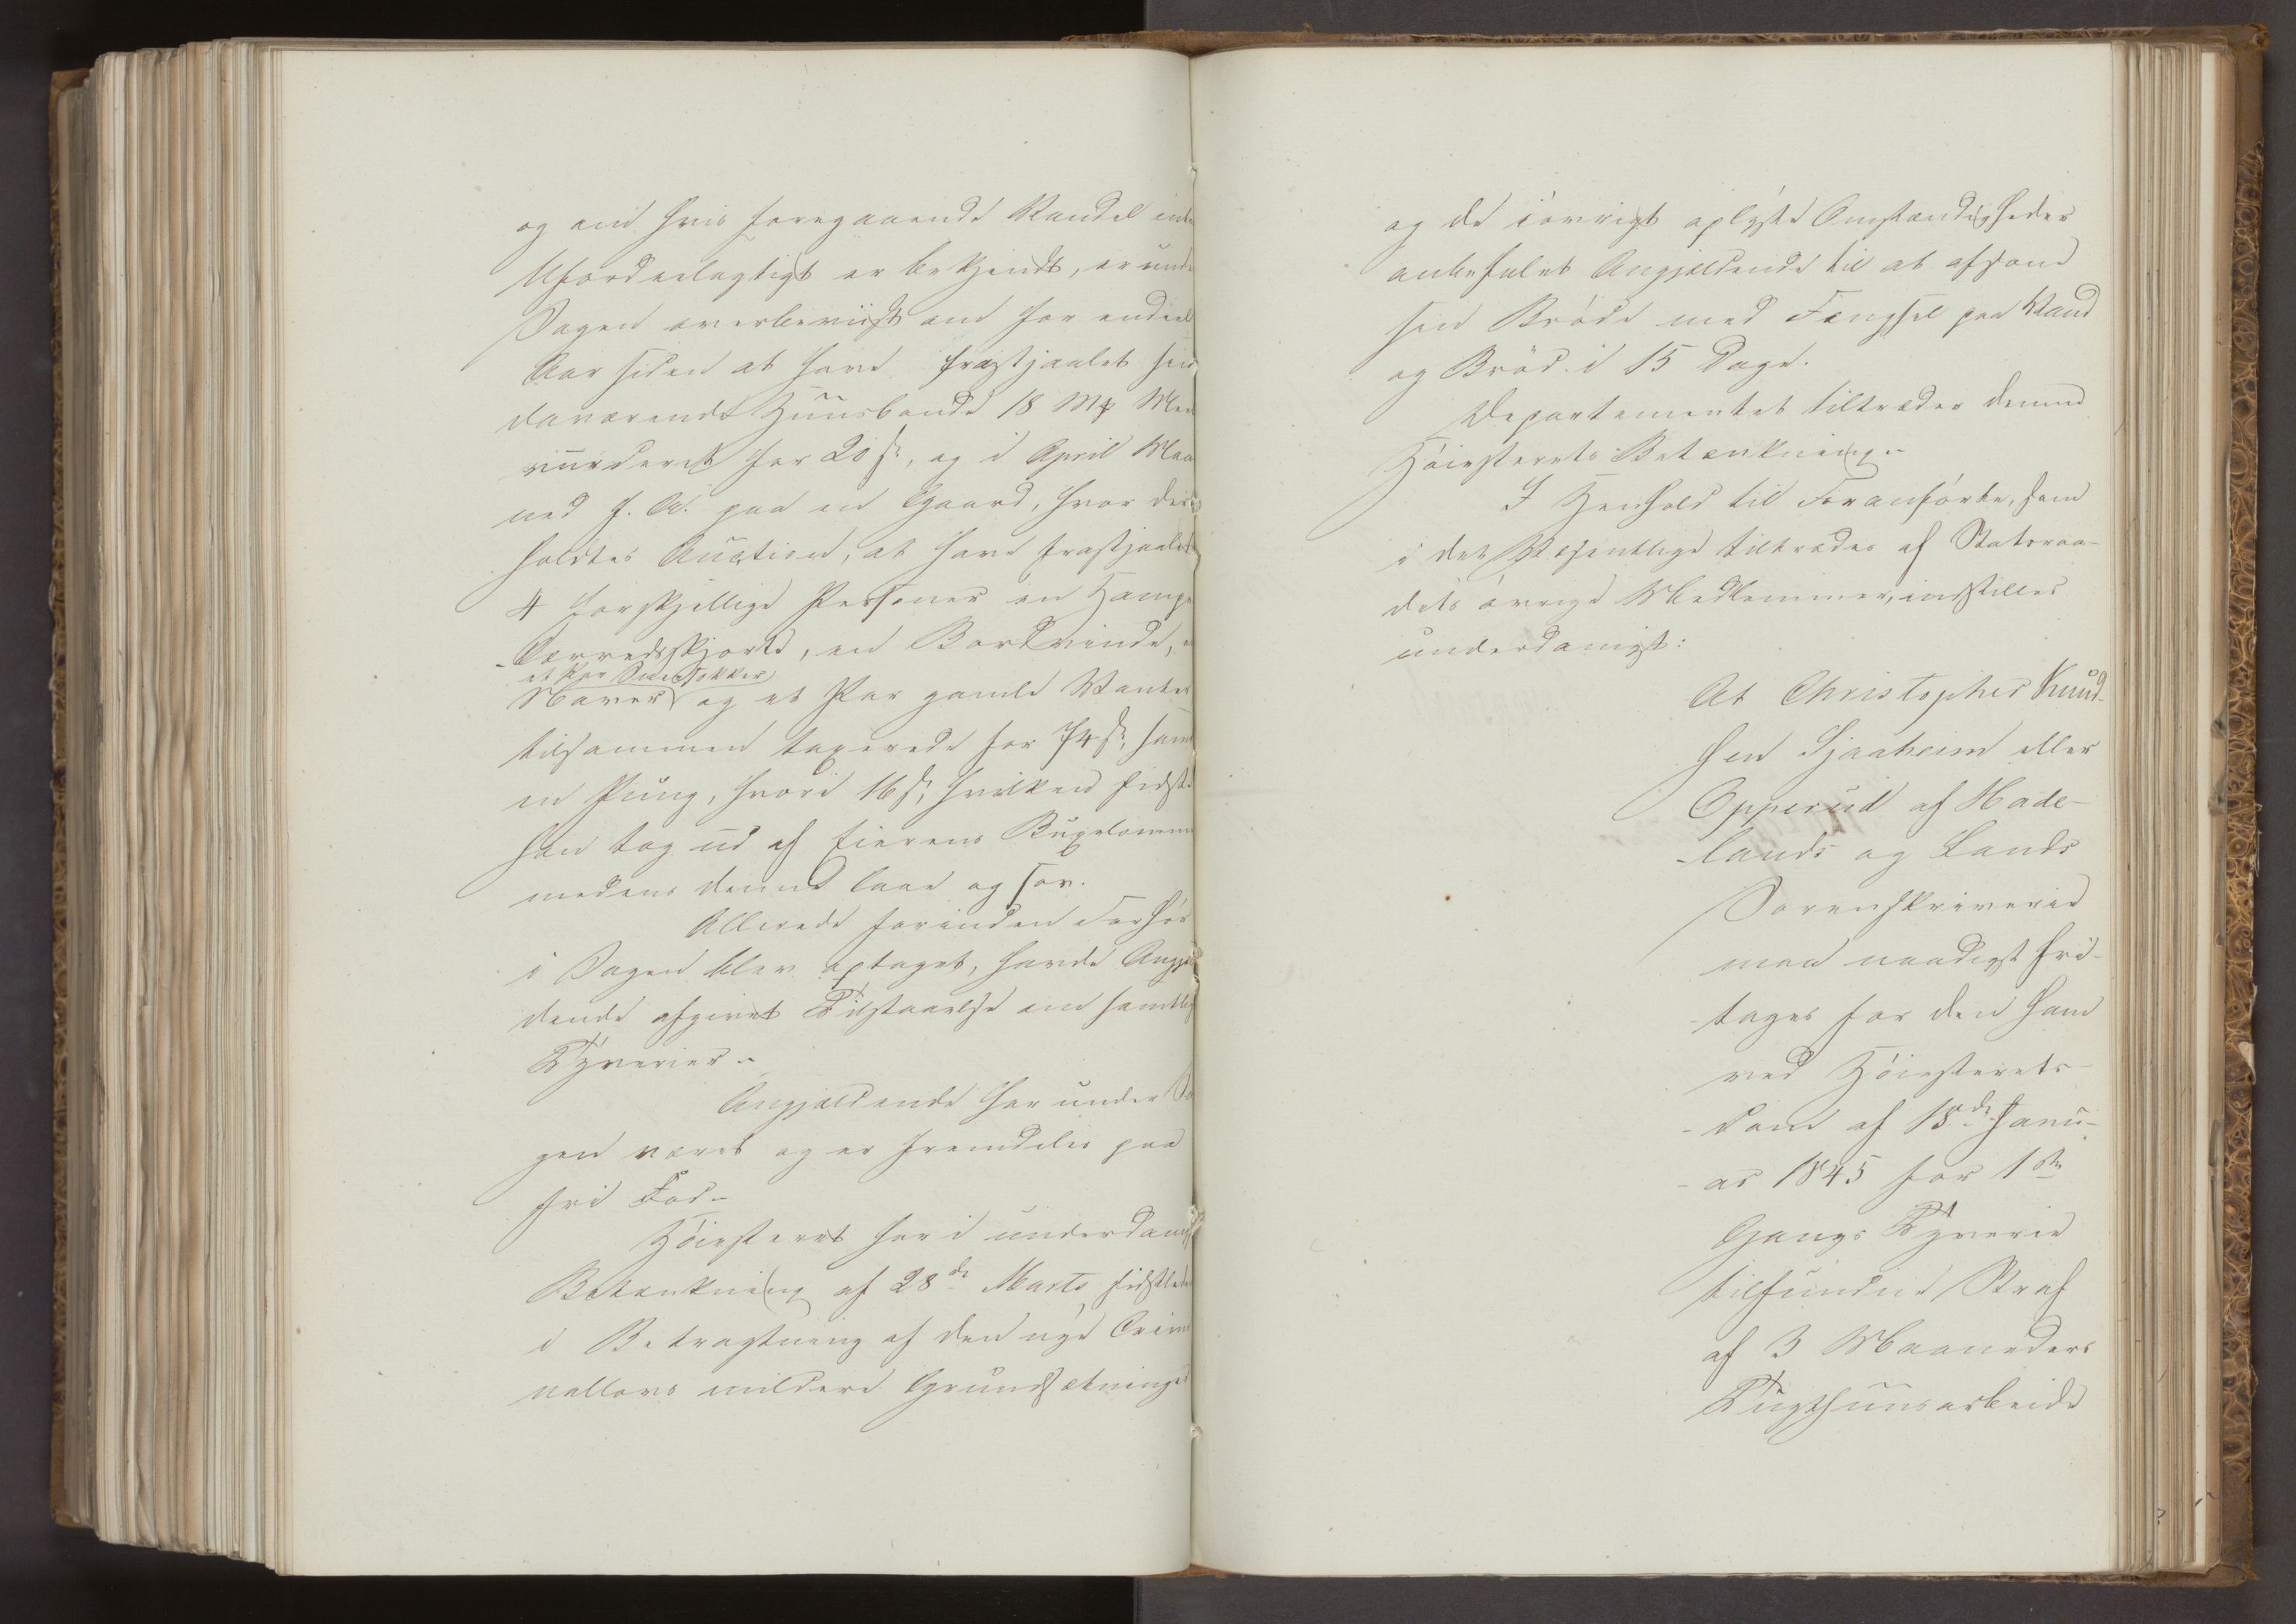 og om hvis foregaaende Vandel intet
Ufordeelagtigt er bekjendt, er under
Sagen overbeviist om for endeel
Aar siden at have frastjaalet sin
daværende Huusbonde 18 Mp Meel
vurderet for 20 s, og i April Maa
ned f. A. paa en Gaard, hvor der
holdtes Auction, at have frastjaalet
4 forskjellige Personer en Hampe
-lærredsskjorte, en Bordkinde, en
et Par Sokker
Naver og et Par gamle Vanter
tilsammen taxerede for 74 s, samt
en Pung, hvori 16 s, hvilken sidste
han tog ud af Eierens Buxelomme
medens denne laae og sov.
Allerede forinden Forhør
i Sagen blev optaget, havde Angjæl
dende afgivet Tilstaaelse om samtlige
Tyverier.
Angjældende har under Sa
gen været og er fremdeles paa
fri Fod.
Höiesteret har i underdanigst
Betænkning af 28de Marts sidstleden
i Betragtning af den nye Crimi
nallovs mildere Grundsætninger
og de iøvrigt oplyste Omstændigheder
anbefalet Angjældende til at afsone
sin Bröde med Fængsel paa Vand
og Bröd i 15 Dage.
Departementet tiltræder denne
Höiesterets Betænkning.
I Henhold til Foranförte, som
i det Væsentlige tiltrædes af Statsraa-
dets övrige Medlemmer, indstilles
underdanigst:
At Christopher Knud-
sen Sjaaheim eller
Opperud af Hade-
-lands og Lands
Sorenskriverie
maa naadigst fri-
-tages for den ham
ved Höiesterets-
-dom af 18de Janu-
-ar 1845 for 1ste
Gangs Tyverie
tilfundne Straf
af 3 Maaneders
Tugthuusarbeide